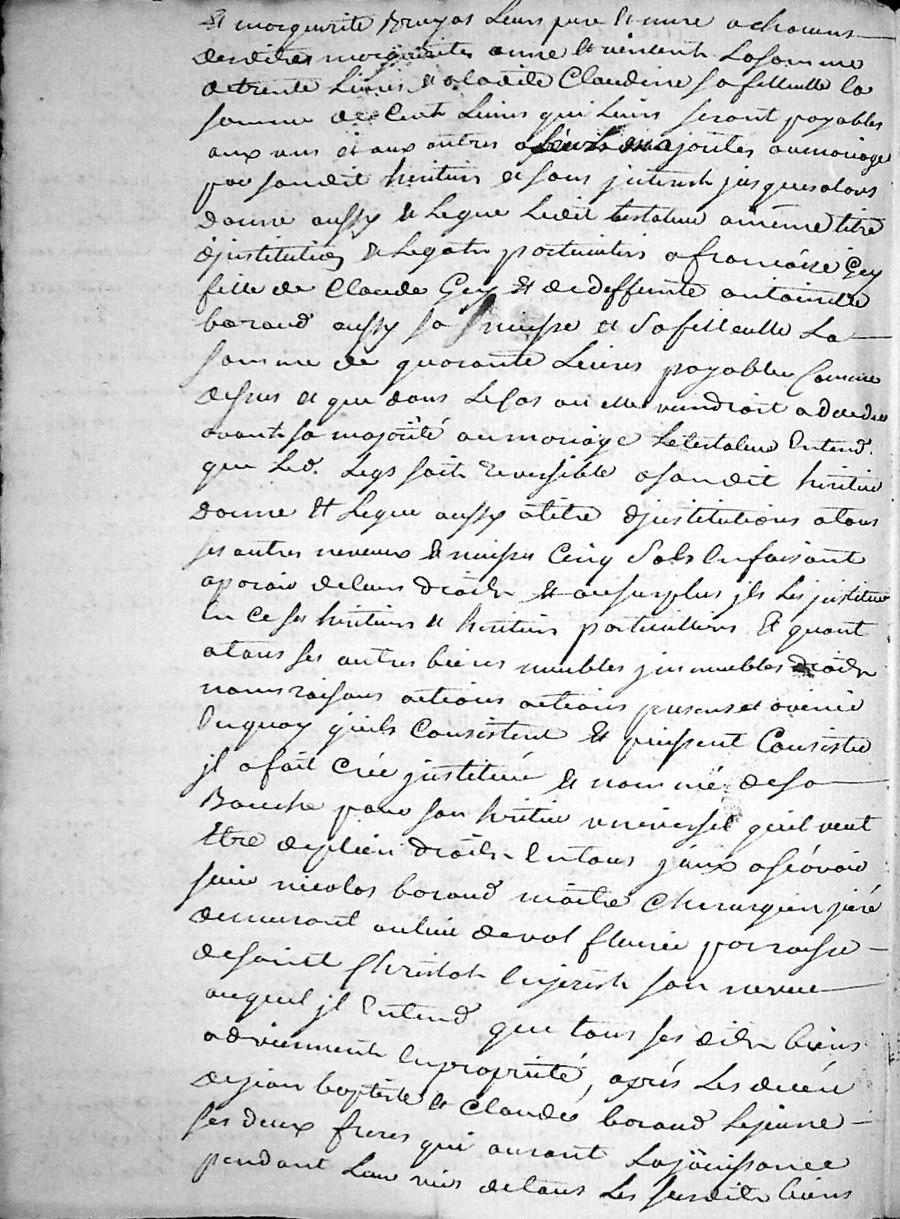 Et marguerite Bruyas Leurs pere Et mere a chacuns
desdites marguerite anne Et vincent La somme
de trente Livres et a ladite Claudine sa filleulle la
somme de Cent Livres qui Leurs seront payables
aux uns et aux autres a majorités au mariage
par sondit heritier et sans jnterest jusques alors
donne aussy et Legue Ledit testateur a même titre
djnstitution et Legats particuliers a francoise Gey
fille de Claude Gey Et de deffunte antoinette
baraud aussy sa niepce et sa filleulle La
somme de quarante Livres payable Comme
desus et que dans Le Cas ou elle viendroit a deceder
avant sa majorité au mariage Le testateur Entend
que Led. Legs soit reversible a sondit heritier
donne Et Legue aussy a titre djnstitutions a tous
ses autres neveux et niepces Cinq Sols En faisant
aparoir de leurs droits Et au surplus jls Les jnstitue
En Ce ses heritiers et heritiers particulliers Et quant
a tous ses autres biens meubles jmmeubles droits
noms raisons actions actions presens et avenir
En quoy qu'ils Consistent Et puissent Consister
jl a fait Créé jnstitué Et nommé de sa
Bouche pour son heritier universel qu'il veut
Etre de plein droits En tous jceux a scávoir
sieur nicolas baraud maitre chirurgien juré
demeurant au lieu de val fleurie parroisse
de saint Christoh En jarest son neveu
auquel jl Entend que tous ses dits biens
adviennent En propriété, aprés Les decés
de jean baptiste et Claude baraud Le jeune
ses deux freres qui auront La jöuissance
pendant Leur vies de tous Les susdits biens